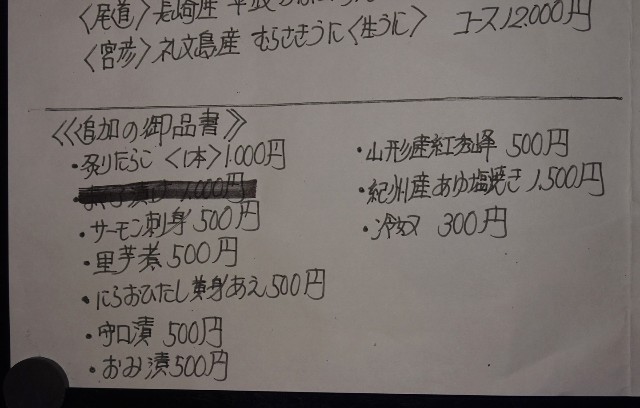 〈尾道〉長崎産
〈宮彦〉礼文島産 むらさきうに〈生うに〉 コース12.000円
《追加の御品書》
・炙りたらこ〈1本〉1.000円
1.000円
・サーモン刺身 500円
・里芋煮 500円
・にらおひたし黄身あえ500円
・守口漬 500円
・おみ漬500円
・山形産紅秀峰 500円
・紀州産あゆ塩焼き 1,500円
・冷奴 300円